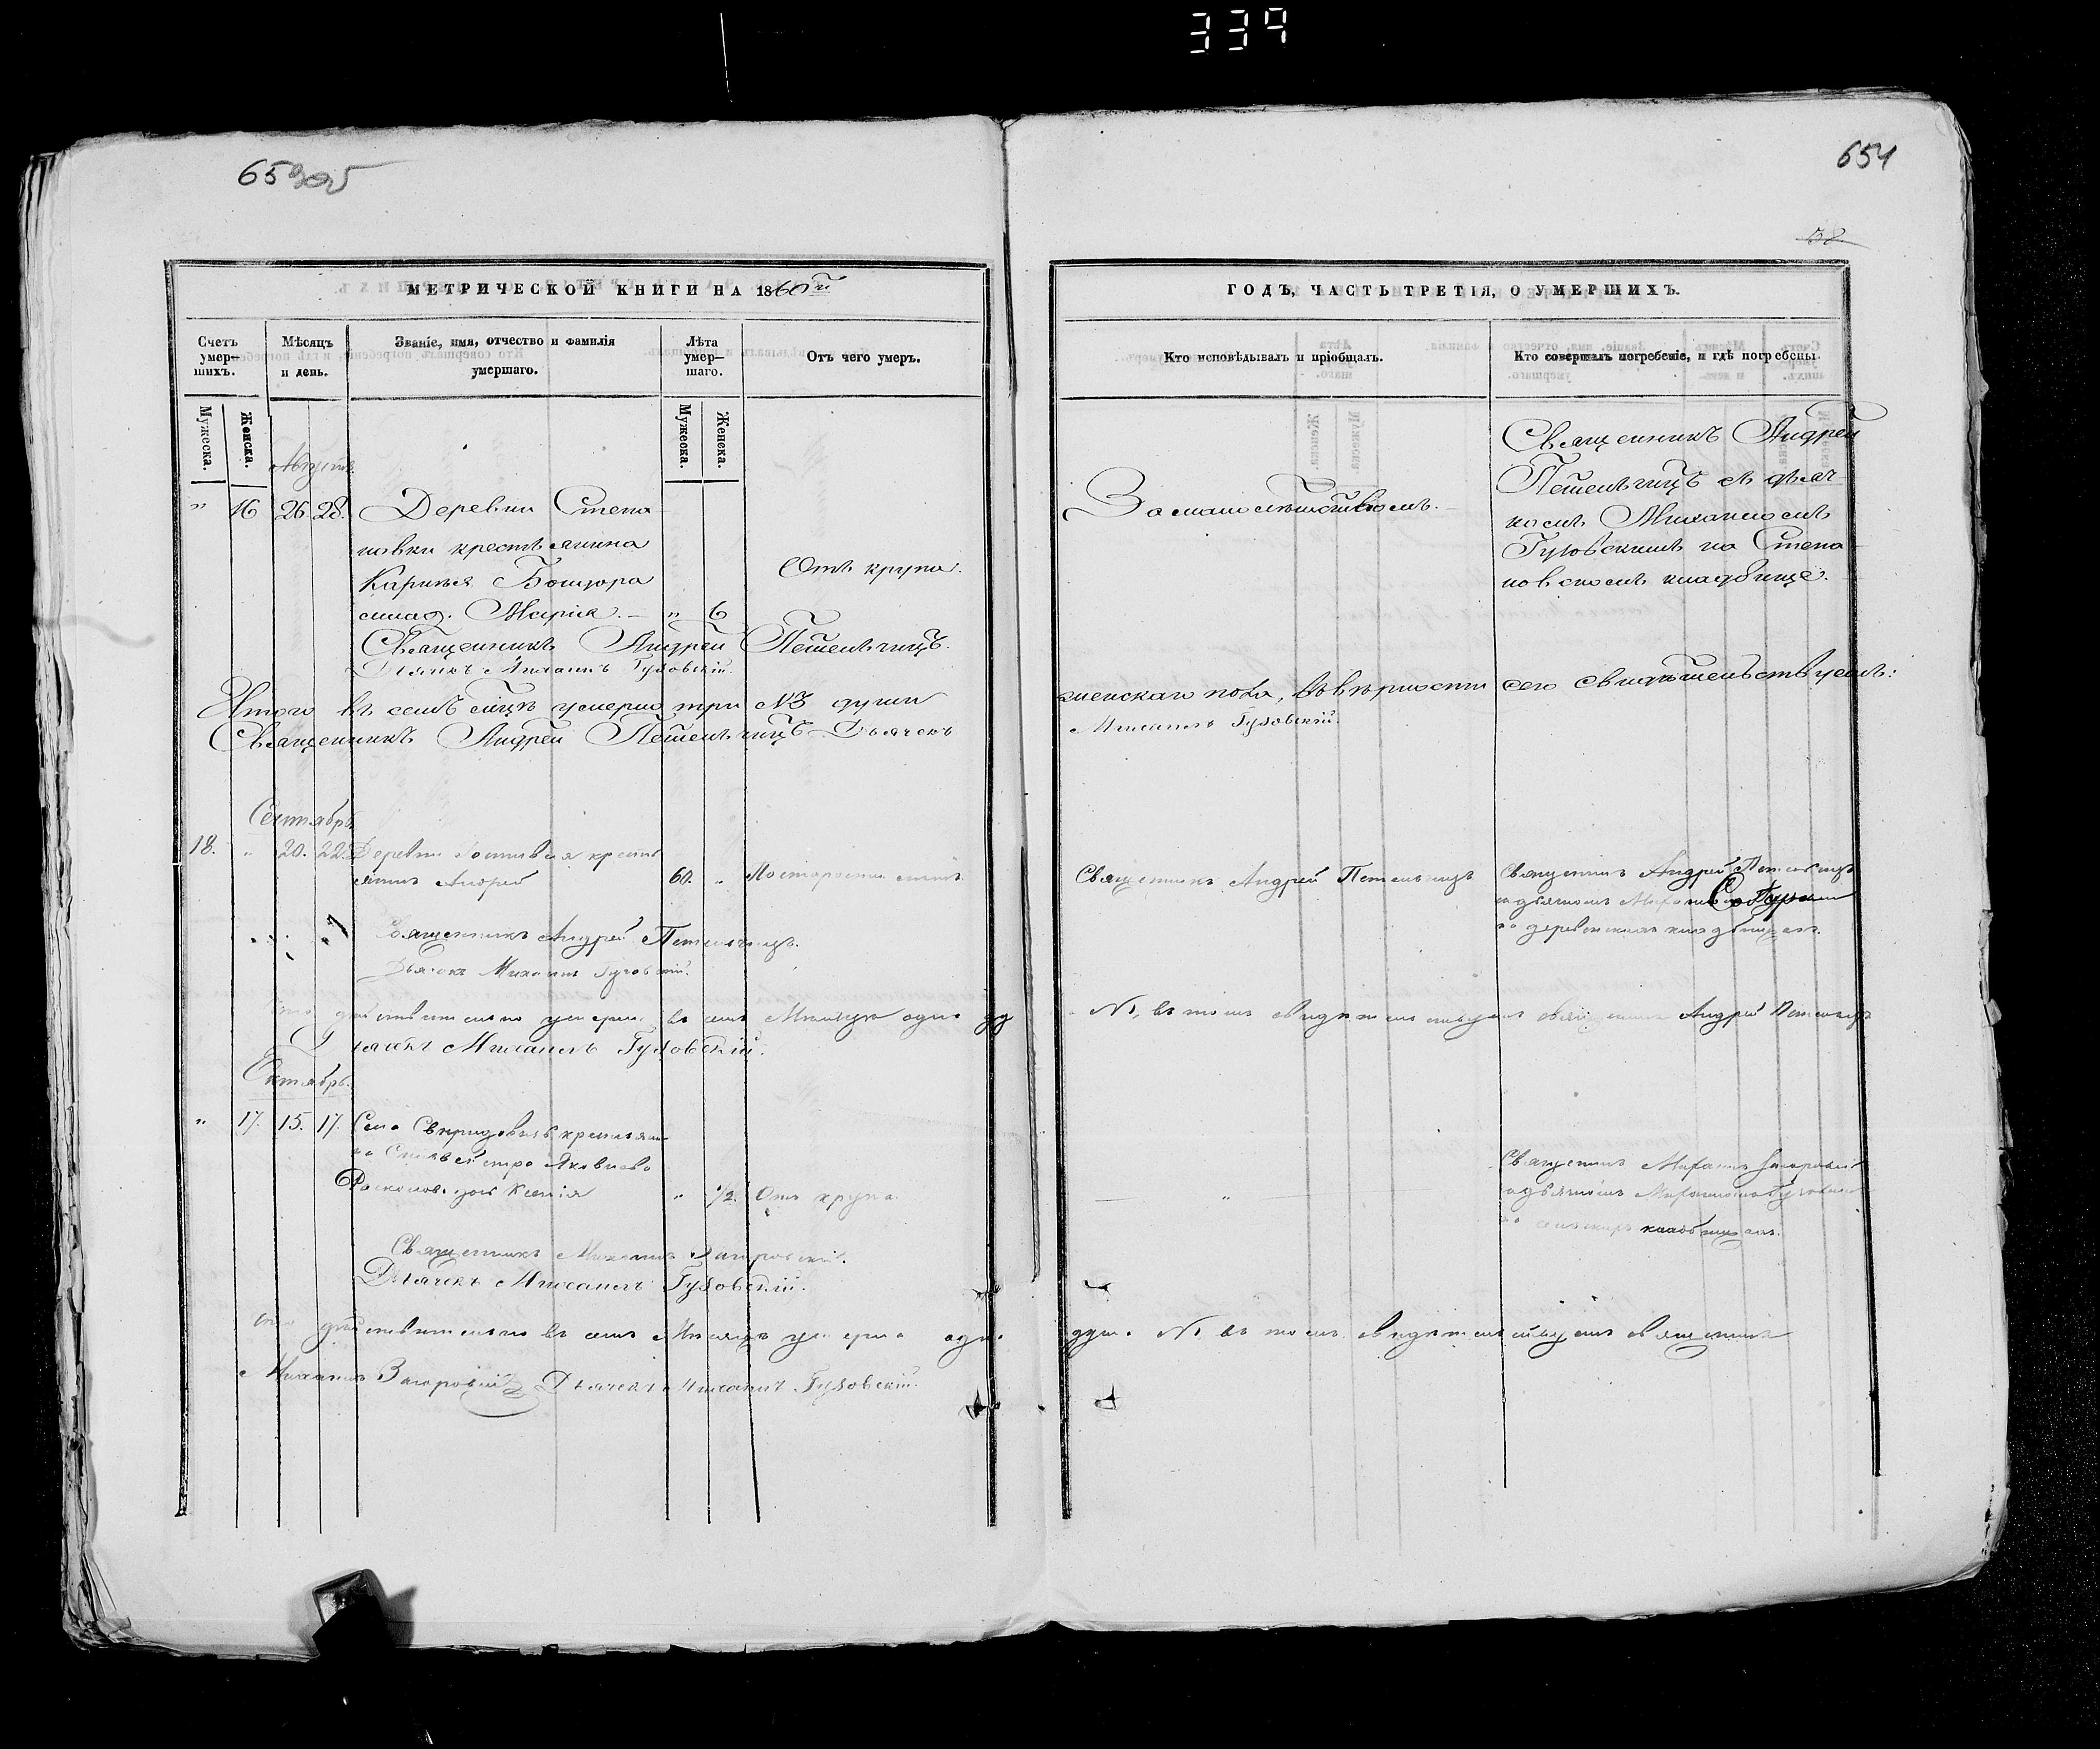 339
65 зоб
654
58
МЕТРИЧЕСКОЙ КНИГИ НА 1860й
ГОДЪ, ЧАСТЬ ТРЕТІЯ, О УМЕРШИХЪ.
Счетъ умер-шихъ.
Мѣсяцъ и день.
Званіе, имя, отчество и фамилія умершаго.
Лѣта умер-шаго.
Отъ чего умеръ.
Кто исповѣдывалъ и пріобщалъ.
Кто совершалъ погребеніе, и гдѣ погребены.
Мужеска.
Женска.
Мужеска.
Женска.
Августъ
" 16 26. 28. Деревни Степа
новки крестьянина
млад. Марія. — " 6
Отъ крупа.
За малолѣтствомъ.
Священникъ Андрей
Петелъчицъ съ дьяч
комъ Михаиломъ
Гуховскимъ на Степа
новскомъ кладбище.
Священникъ Андрей Петелъчицъ.
Дьячкъ Михаилъ Гуховскій.
Итого въ семъ мѣсяцѣ умерло три №3 души
женскаго пола, въ вѣрности сего свидѣтельствуемъ:
Священникъ Андрей Петелъчицъ Дьячекъ
Михаилъ Гуховскій.
Сентябрь
18. " 20. 22. Деревни крест
янинъ Андрей 60. " По старости
Священникъ Андрей Петелъчицъ
Священникъ Андрей Петелъчицъ
на деревенскомъ кладбище.
Священникъ Андрей Петелъчицъ.
Дьячокъ Михаилъ Гуховскій.
дѣйствительно умерло въ семъ Мѣсяцѣ одна ду
№1, въ томъ свидѣтельствуемъ священникъ Андрей Петелъчицъ
Дьячекъ Михаилъ Гуховскій.
Октябрь.
" 17. 15. 17. Села крестьяни
на Яковлева
Ксенія " 1/2. Отъ крупа
"
Священникъ Михаилъ Загоровскій
съ дьячкомъ Михаиломъ Гуховскимъ
на кладбище.
Священникъ Михаилъ Загоровскій.
Дьячекъ Михаилъ Гуховскій.
что дѣйствительно въ семъ Мѣсяцѣ умерла одна
душа №1 въ томъ свидѣтельствуемъ священникъ
Михаилъ Загоровскій Дьячекъ Михаилъ Гуховскій.